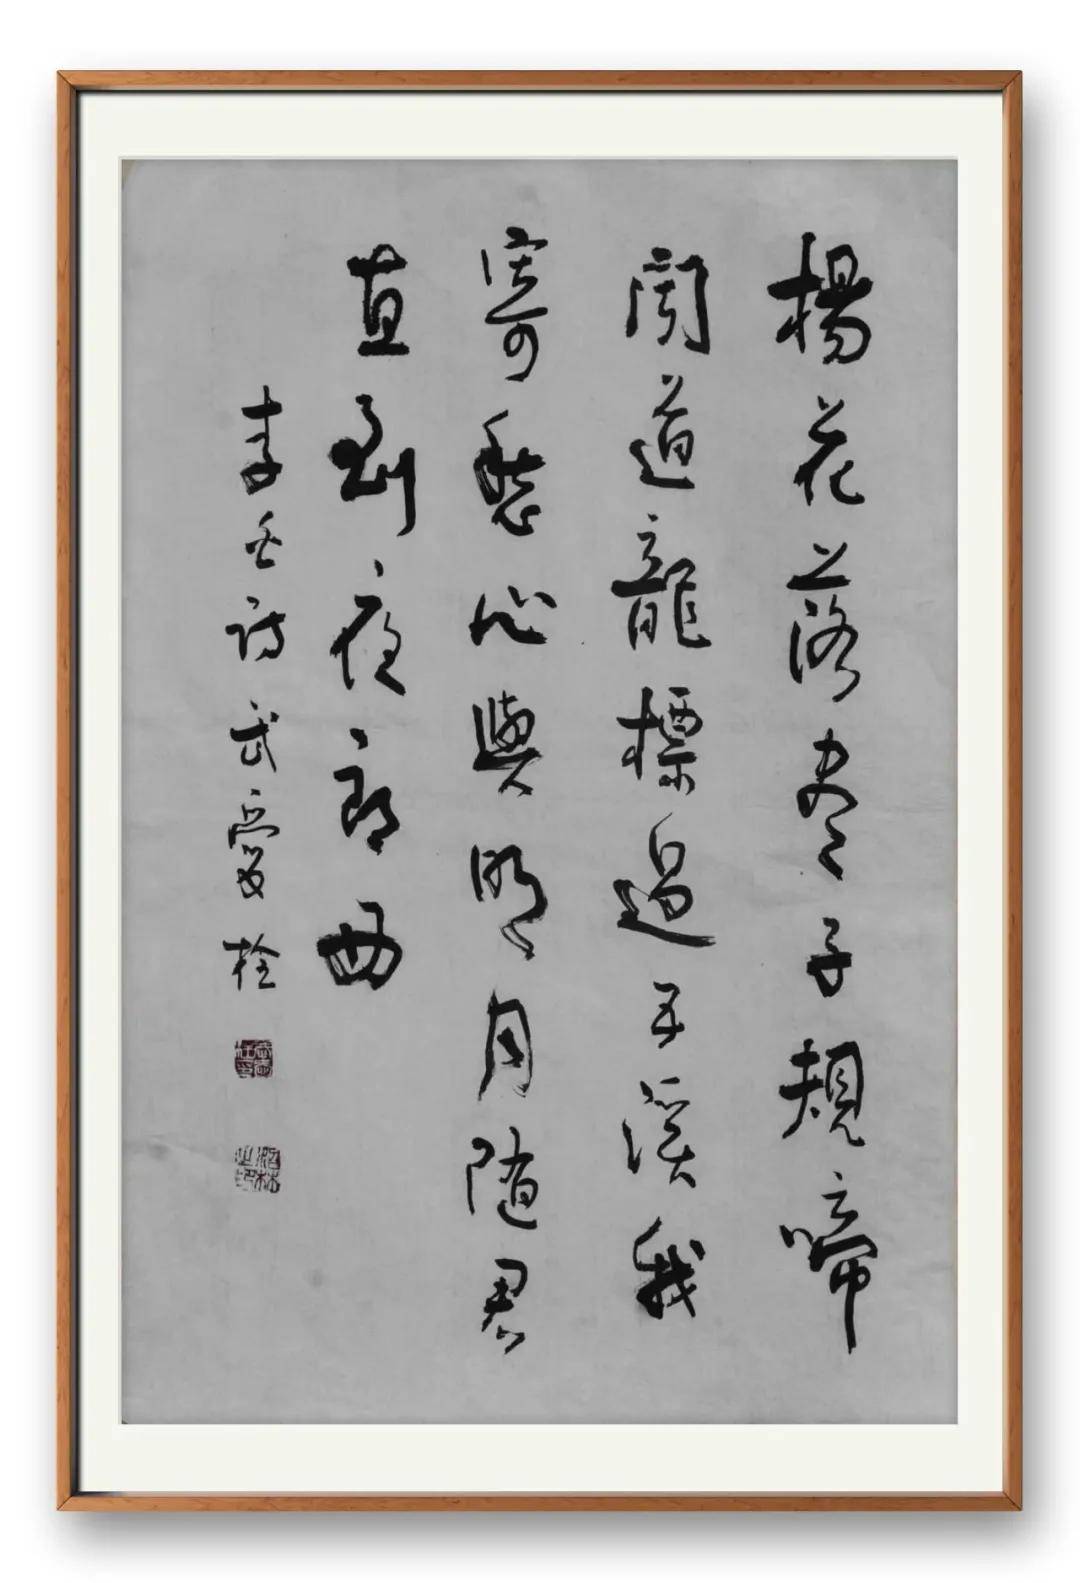 楊花落尽子規啼
闻道龍標過五溪我
寄愁心與明月随君
直到夜郎西
李白詩武愛栓